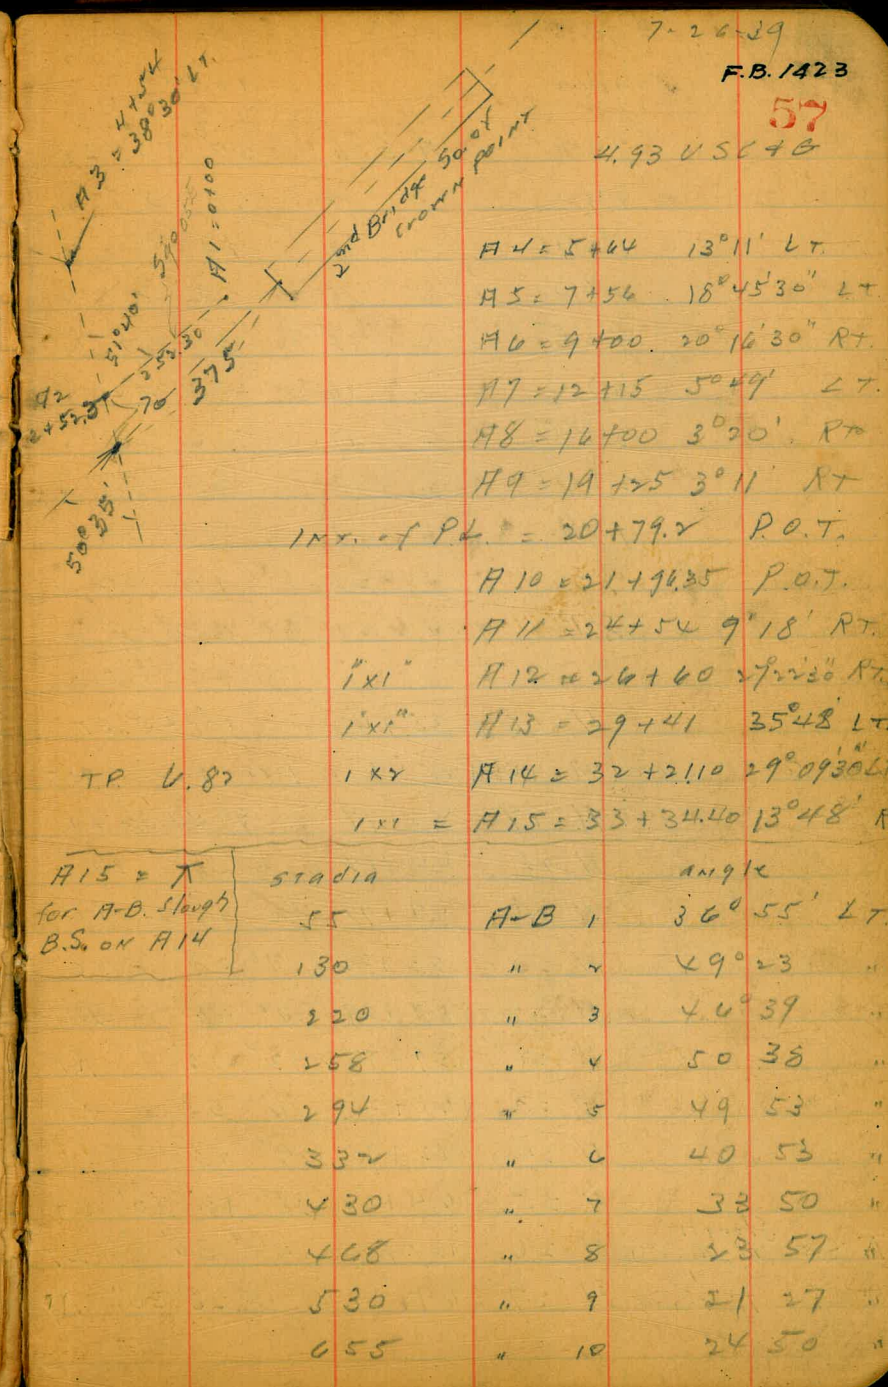 7-26-39
F.B. 1423
57
4.93 USC+G
A3 = 4+54
38° 30' LT.
A1 = 0+00
2nd Bridge 50.0x
Crown Point
51°40'
252.30
375
70
A2
2+52.3
50°35'
A4 = 5+64 13°11' LT.
A5 = 7+56 18°45'30" LT
A6 = 9+00. 20°16'30" RT.
A7 = 12+15 5°49' LT.
A8 = 16+00 3°20' RT
A9 = 19+25 3°11' RT
Inx. of P.L. = 20+79.2 P.O.T.
A10 = 21+96.35 P.O.T.
A11 = 24+54 9°18' RT.
1"x1" A12 = 26+60 27°22'30" RT.
1"x1" A13 = 29+41 35°48' LT.
TP 6.82 1x2 A14 = 32+21.10 29°09'30" LT
1x1 = A15 = 33+34.40 13°48' R
A15 = ⊼
for A-B. Slough
B.S. ON A14
stadia angle
55 A-B 1 36° 55' LT.
130 " 2 49° 23 "
220 " 3 46° 39 "
258 " 4 50 38 "
294 " 5 49 53 "
332 " 6 40 53 "
430 " 7 33 50 "
468 " 8 23 57 "
530 " 9 21 27 "
655 " 10 24 50 "